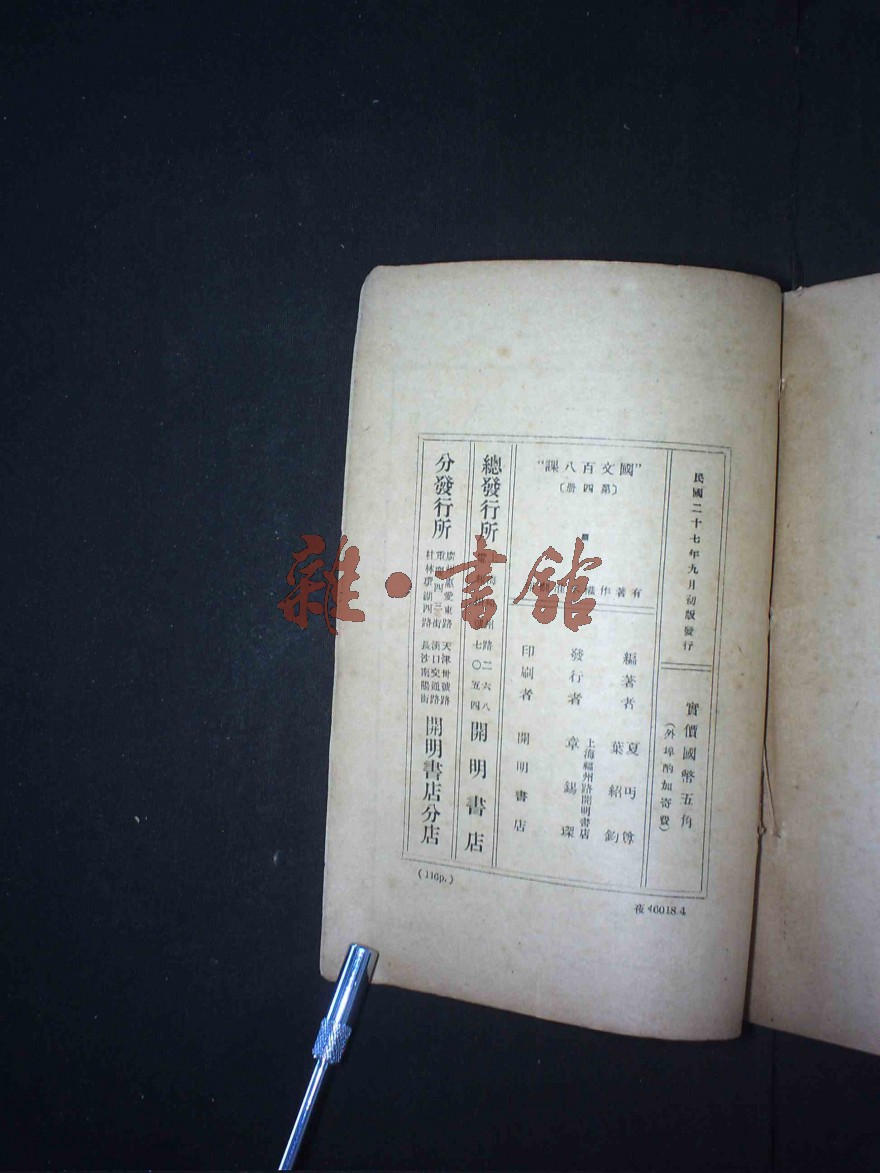 民國二十七年九月初版發行
實價國幣五角
（外埠酌加寄費）
“國文百八課”
〔第四册〕
有著作權
編著者 夏丏尊 葉紹鈞
發行者 上海福州路開明書店 章錫琛
印刷者 開明書店
總發行所
路二六八
七〇五四
開明書店
分發行所
惠愛東路 天津
漢口交通路
桂林環湖四路 長沙南陽街
開明書店分店
(116p.)
夜
6018.4
雜·書館